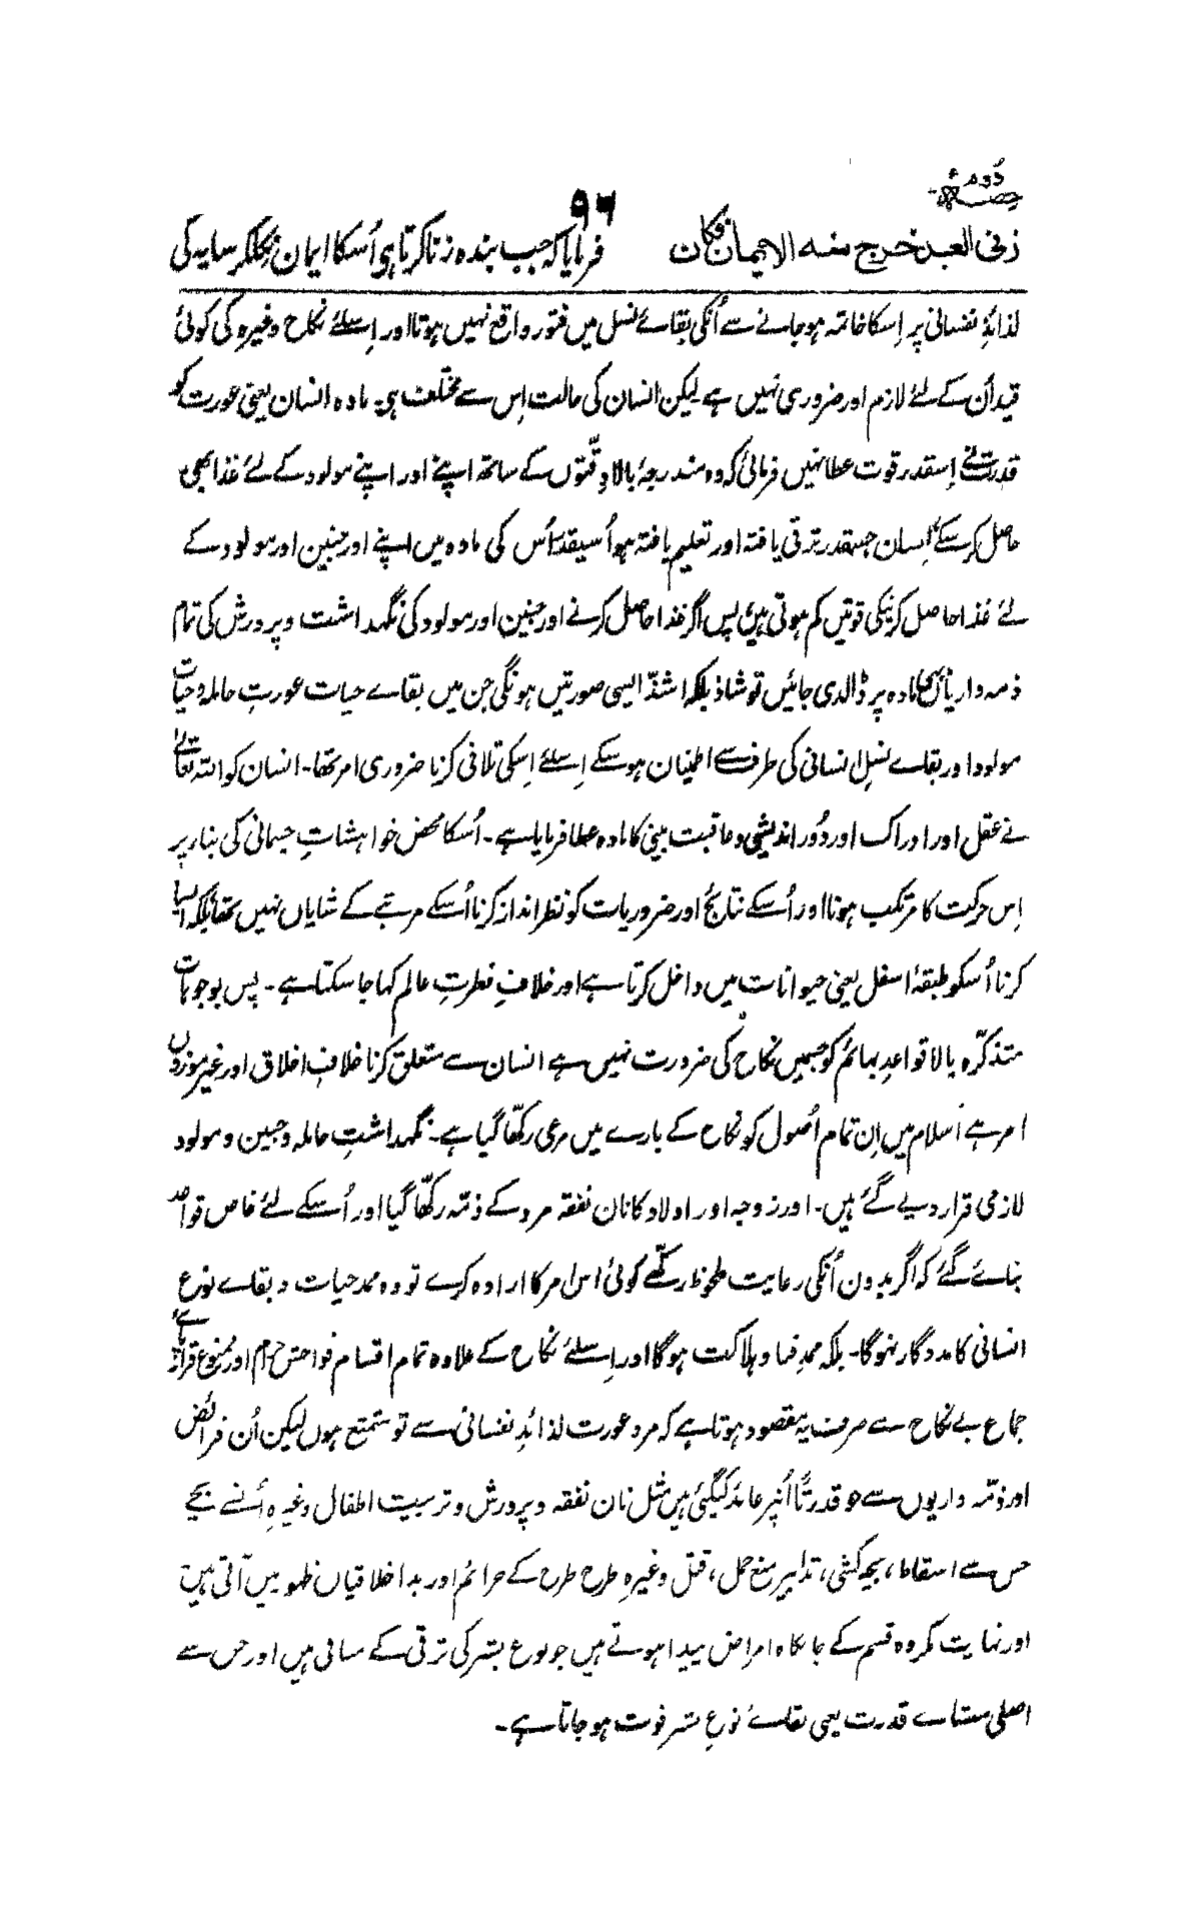 حصۂ دوم
۹۶
زنی العبد خرج منہ الایمان فکان
فرمایا کہ جب بندہ زنا کرتا ہی اُسکا ایمان نکلکر سایہ کی
لذائذِ نفسانی پر اِسکا خاتمہ ہوجانے سے اُنکی بقائے نسل میں فتور واقع نہیں ہوتا اور اِسلئے نکاح وغیرہ کی کوئی
قید اُن کے لئے لازم اور ضروری نہیں ہے لیکن انسان کی حالت اِس سے مختلف ہی۔ مادہ انسان یعنی عورت کو
قدرت نے اِسقدر قوت عطا نہیں فرمائی کہ وہ مندرجۂ بالا دِقّتوں کے ساتھ اپنے اور اپنے مولود کے لئے غذا بھی
حاصل کرسکے انسان جسقدر ترقی یافتہ اور تعلیم یافتہ ہو اُسیقدر اُس کی مادہ میں اپنے اور جنین اور مولود کے
لئے غذا حاصل کرنیکی قوتیں کم ہوتی ہیں پس اگر غذا حاصل کرنے اور جنین اور مولود کی نگہداشت و پرورش کی تمام
ذمہ داریاں بھی مادہ پر ڈالدی جائیں تو شاذ بلکہ اشذّ ایسی صورتیں ہونگی جن میں بقاے حیات عورتِ حاملہ و حیات
مولود اور بقاے نسلِ انسانی کی طرف سے اطمینان ہوسکے اِسلئے اِسکی تلافی کرنا ضروری امر تھا۔ انسان کو اللہ تعالےٰ
نے عقل اور ادراک اور دُور اندیشی و عاقبت بینی کا مادہ عطا فرمایا ہے۔ اُسکا محض خواہشاتِ جسمانی کی بنا پر
اِس حرکت کا مرتکب ہونا اور اُسکے نتائج اور ضروریات کو نظر انداز کرنا اُسکے مرتبے کے شایاں نہیں تھا بلکہ ایسا
کرنا اُسکو طبقۂ اسفل یعنی حیوانات میں داخل کرتا ہے اور خلافِ فطرتِ عالم کہا جاسکتا ہے۔ پس بوجوہات
متذکرّہ بالا قواعدِ بہائم کو جسمیں نکاح کی ضرورت نہیں ہے انسان سے متعلق کرنا خلافِ اخلاق اور غیر موزوں
امر ہے اسلام میں اِن تمام اُصول کو نکاح کے بارے میں مرعی رکھّا گیا ہے۔ نگہداشتِ حاملہ و جنین و مولود
لازمی قرار دیے گئے ہیں۔ اور زوجہ اور اولاد کا نان نفقہ مرد کے ذمّہ رکھّا گیا اور اُسکے لئے خاص قواعد
بنائے گئے کہ اگر بدون اُنکی رعایت ملحوظ رکھّے کوئی اس امر کا ارادہ کرے تو وہ ممد حیات و بقاے نوع
انسانی کا مددگار نہوگا۔ بلکہ ممدِ فنا و ہلاکت ہوگا اور اِسلئے نکاح کے علاوہ تمام اقسام فواحش حرام اور ممنوع قرار پائے
جماع بے نکاح سے صرف یہ مقصود ہوتا ہے کہ مرد عورت لذائذِ نفسانی سے تو متمتع ہوں لیکن اُن فرائض
اور ذمّہ داریوں سے جو قدرتًا اُنپر عائد کیگئی ہیں مثل نان نفقہ و پرورش و تربیت اطفال وغیرہ اُنسے بچے
جس سے اسقاط، بچہ کشی، تدابیر منع حمل، قتل وغیرہ طرح طرح کے جرائم اور بداخلاقیاں ظہور میں آتی ہیں
اور نہایت مکروہ قسم کے جانکاہ امراض پیدا ہوتے ہیں جو نوع بشر کی ترقی کے منافی ہیں اور جس سے
اصلی منشاے قدرت یعنی بقائے نوعِ بشر فوت ہوجاتا ہے۔